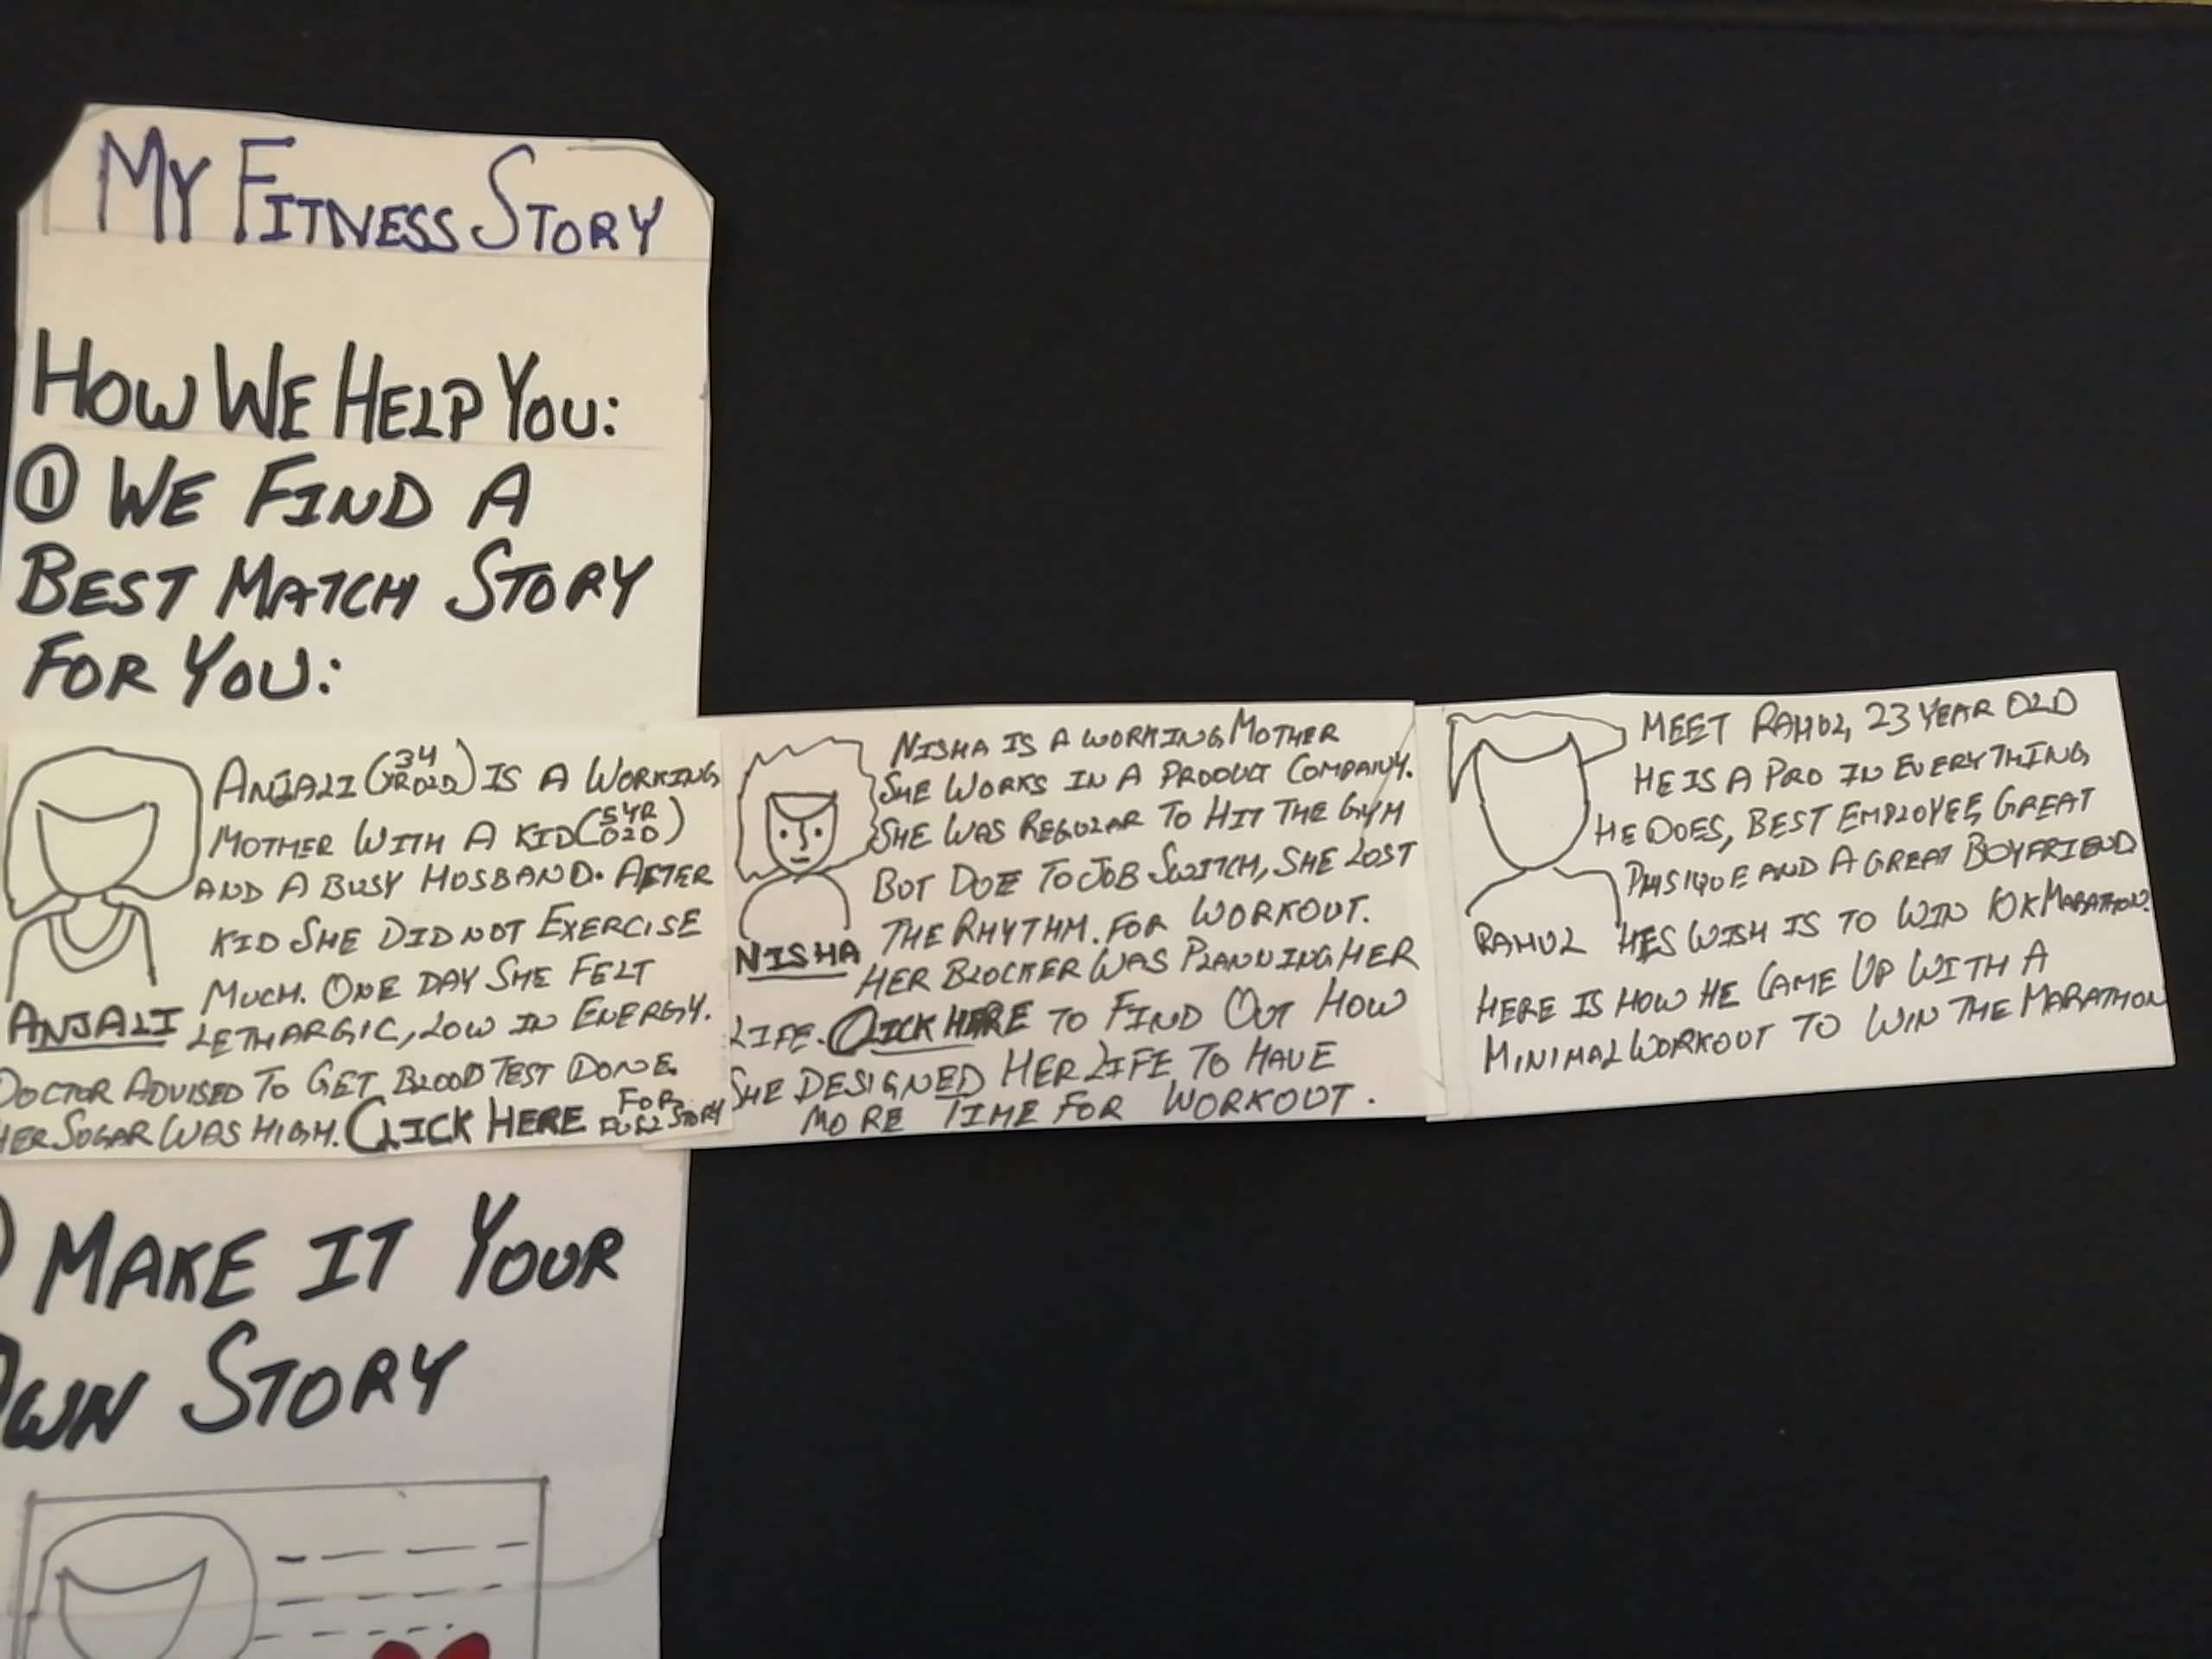 MY FITNESS STORY
HOW WE HELP YOU:
① WE FIND A
BEST MATCH STORY
FOR YOU:
ANJALI (34 YR OLD) IS A WORKING
MOTHER WITH A KID (5 YR OLD)
AND A BUSY HUSBAND. AFTER
KID SHE DID NOT EXERCISE
MUCH. ONE DAY SHE FELT
LETHARGIC, LOW IN ENERGY.
ANJALI
DOCTOR ADVISED TO GET BLOOD TEST DONE.
HER SUGAR WAS HIGH. CLICK HERE FOR FULL STORY
NISHA IS A WORKING MOTHER
SHE WORKS IN A PRODUCT COMPANY.
SHE WAS REGULAR TO HIT THE GYM
BUT DUE TO JOB SWITCH, SHE LOST
THE RHYTHM. FOR WORKOUT.
NISHA
HER BLOCKER WAS PLANNING HER
LIFE. CLICK HERE TO FIND OUT HOW
SHE DESIGNED HER LIFE TO HAVE
MORE TIME FOR WORKOUT.
MEET RAHUL, 23 YEAR OLD
HE IS A PRO IN EVERYTHING
HE DOES, BEST EMPLOYEE, GREAT
PHSIQUE AND A GREAT BOYFRIEND
RAHUL
HES WISH IS TO WIN 10K MARATHON.
HERE IS HOW HE CAME UP WITH A
MINIMAL WORKOUT TO WIN THE MARATHON
MAKE IT YOUR
OWN STORY